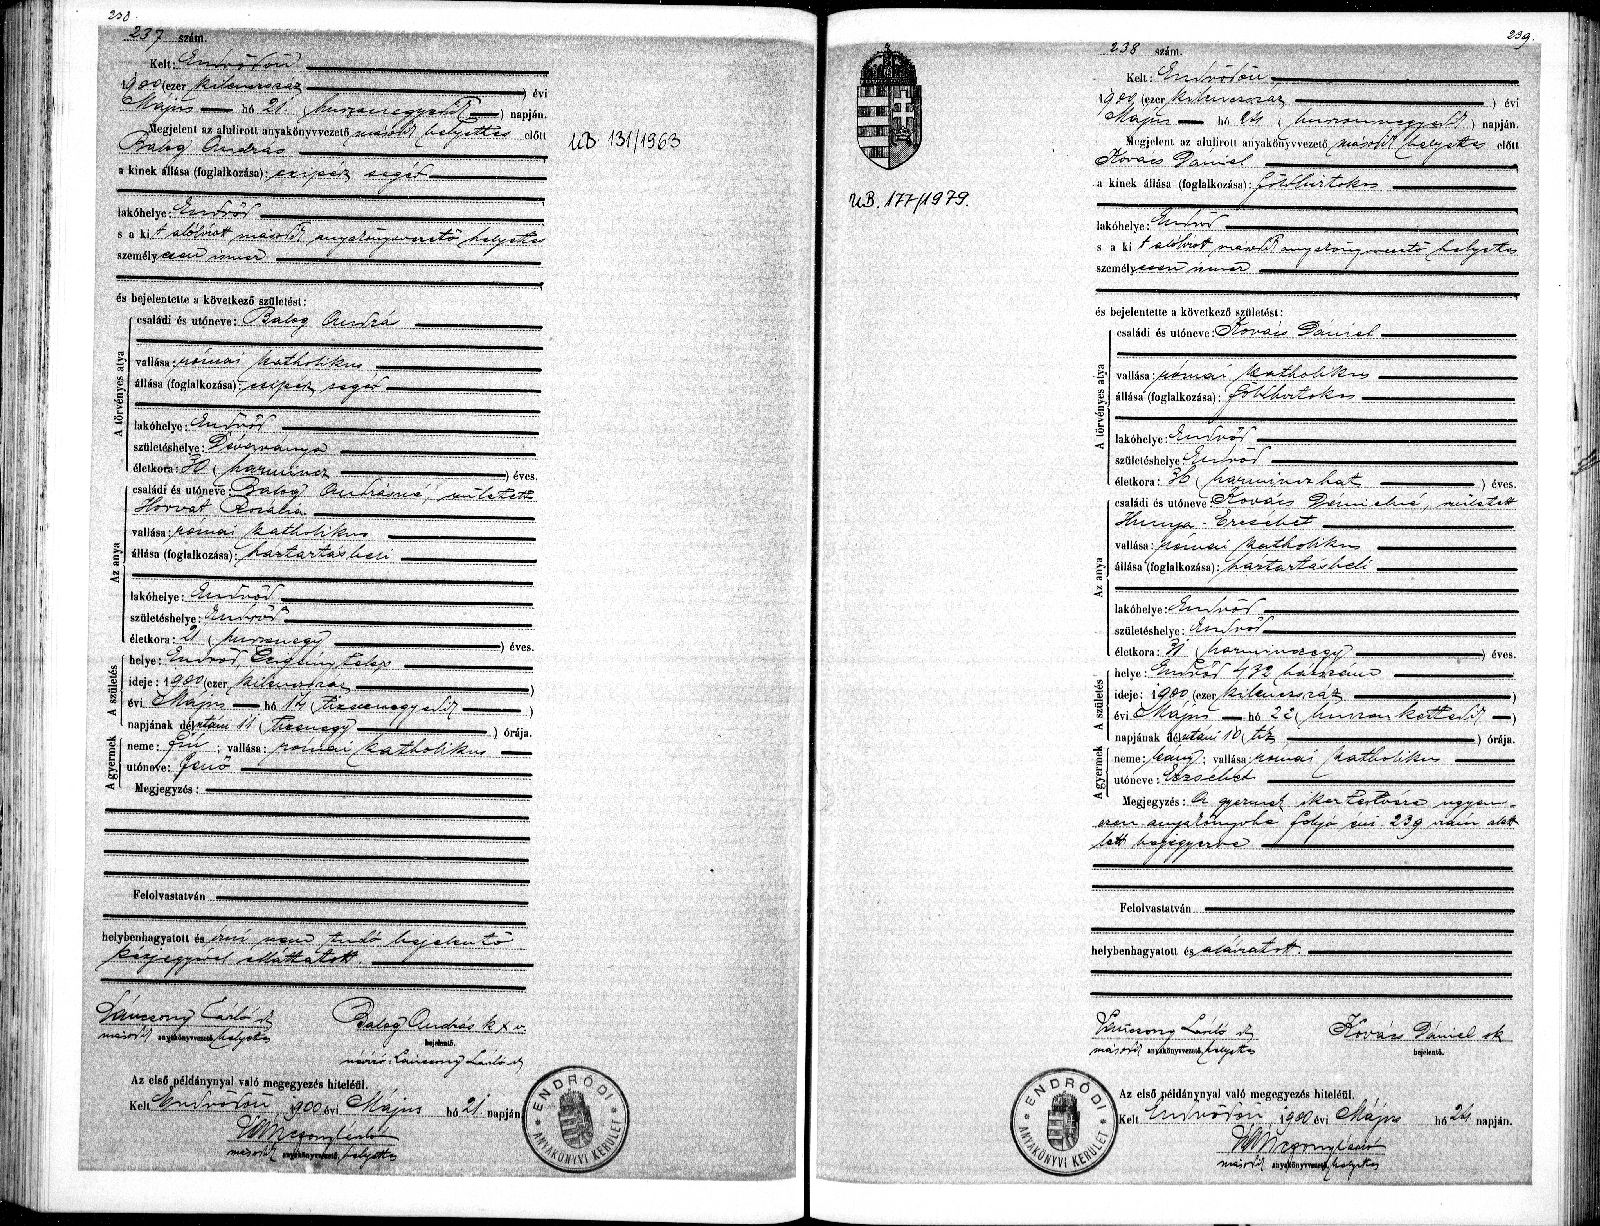 238.
237 szám.
Kelt: Endrődön
1900 (ezer kilencszáz) évi
Május hó 21 (huszonegyedik) napján.
Megjelent az alulirott anyakönyvvezető másodk helyettes előtt
Balog András
a kinek állása (foglalkozása): cséplő segéd
lakóhelye: Endrőd
s a kit alólirott másodk anyakönyvvezető helyettes
személyesen ismer
és bejelentette a következő születést:
A törvényes atya
családi és utóneve: Balog Andrá
vallása: római katholikus
állása (foglalkozása):
lakóhelye: Endrőd
születéshelye: Dévaványa
életkora: 30 (harmincz) éves.
Az anya
családi és utóneve: Balog Andrásné, született
Horvát Rozália
vallása: római katholikus
állása (foglalkozása): háztartásbeli
lakóhelye: Endrőd
születéshelye: Endrőd
életkora: 21 (huszonegy) éves.
A születés
helye: Endrőd,
ideje: 1900 (ezer kilencszáz)
évi Május hó 14 (tizennegyedik)
napjának délután 11 (tizenegy) órája.
A gyermek
neme: fiú; vallása: római katholikus
utóneve: Jenő
Megjegyzés:
Felolvastatván
helybenhagyatott és irni nem tudó bejelentő
kézjegyével elláttatott.
Láncsony László
másodk anyakönyvvezető helyettes
Balog András k x v.
bejelentő.
névíró: Láncsony László
Az első példánynyal való megegyezés hiteléül.
Kelt Endrődön, 1900 évi Május hó 21 napján
másodk anyakönyvvezető helyettes
ENDRŐDI ANYAKÖNYVI KERÜLET
UB 131/1963
239.
UB. 177/1979.
238 szám.
Kelt: Endrődön
1900 (ezer kilencszáz) évi
Május hó 24 (huszonnegyedik) napján.
Megjelent az alulirott anyakönyvvezető másodk helyettes előtt
Kovács Dániel
a kinek állása (foglalkozása): földbirtokos
lakóhelye: Endrőd
s a kit alólirott másodk anyakönyvvezető helyettes
személyesen ismer
és bejelentette a következő születést:
A törvényes atya
családi és utóneve: Kovács Dániel
vallása: római katholikus
állása (foglalkozása): földbirtokos
lakóhelye: Endrőd
születéshelye: Endrőd
életkora: 36 (harminczhat) éves.
Az anya
családi és utóneve: Kovács Dánielné, született
Hunya Erzsébet
vallása: római katholikus
állása (foglalkozása): háztartásbeli
lakóhelye: Endrőd
születéshelye: Endrőd
életkora: 31 (harminczegy) éves.
A születés
helye: Endrőd 432 házszám
ideje: 1900 (ezer kilencszáz)
évi Május hó 22 (huszonkettedik)
napjának délutáni 10 (tiz) órája.
A gyermek
neme: leány; vallása: római katholikus
utóneve: Erzsébet
Megjegyzés: A gyermek ikertestvére ugyan-
ezen anyakönyvbe folyó évi 239 szám alatt
lett bejegyezve
Felolvastatván
helybenhagyatott és aláiratott.
Láncsony László
másodk anyakönyvvezető helyettes
Kovács Dániel sk
bejelentő.
Az első példánynyal való megegyezés hiteléül.
Kelt Endrődön, 1900 évi Május hó 24 napján.
másodk anyakönyvvezető helyettes
ENDRŐDI ANYAKÖNYVI KERÜLET